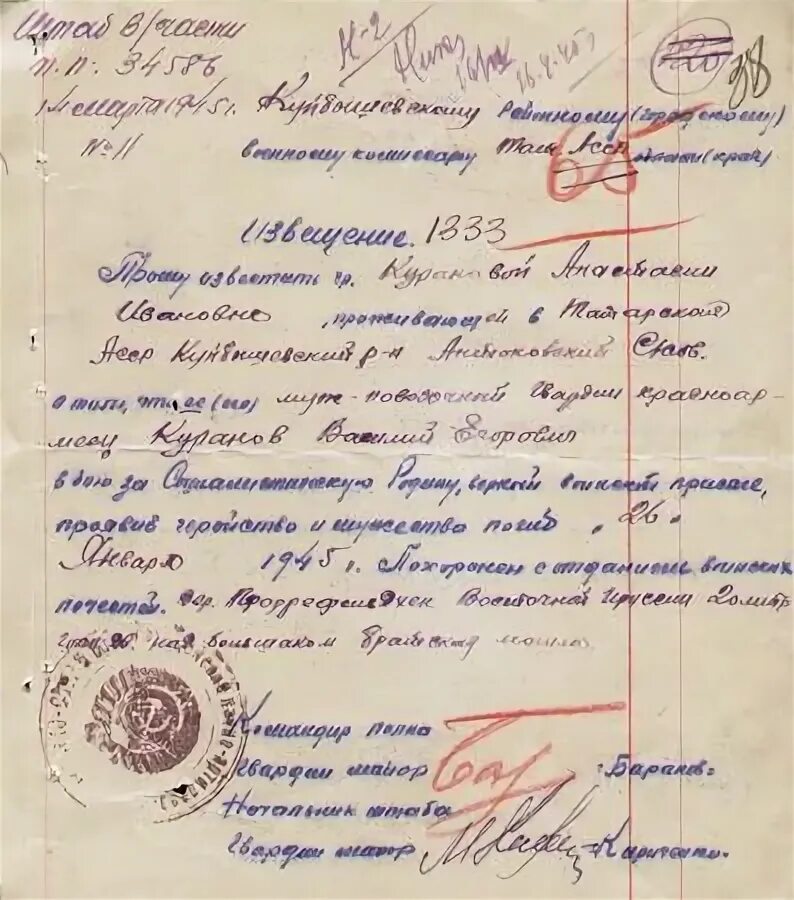 Штаб в/части
п.п. 34586
14 марта 1945 г. Куйбышевскому Районному (городскому)
№ 11 военному комиссару Тат. Асср области (край)
Н-2
16.4.45
65
38
Извещение. 1333
Прошу известить гр. Курановой Анастасии
Ивановно, проживающей в Татарской
Асср Куйбышевский р-н
о том, что ее (его) муж - гвардии красноар-
меец Куранов Василий Егорович
в бою за Социалистическую Родину, верный воинской присяге,
проявив геройство и мужество погиб "26"
Января 1945 г. Похоронен с отданием воинских
почестей. Восточной Пруссии
братской могиле
Командир полка
Гвардии майор -Баранов-
Начальник штаба
Гвардии майор